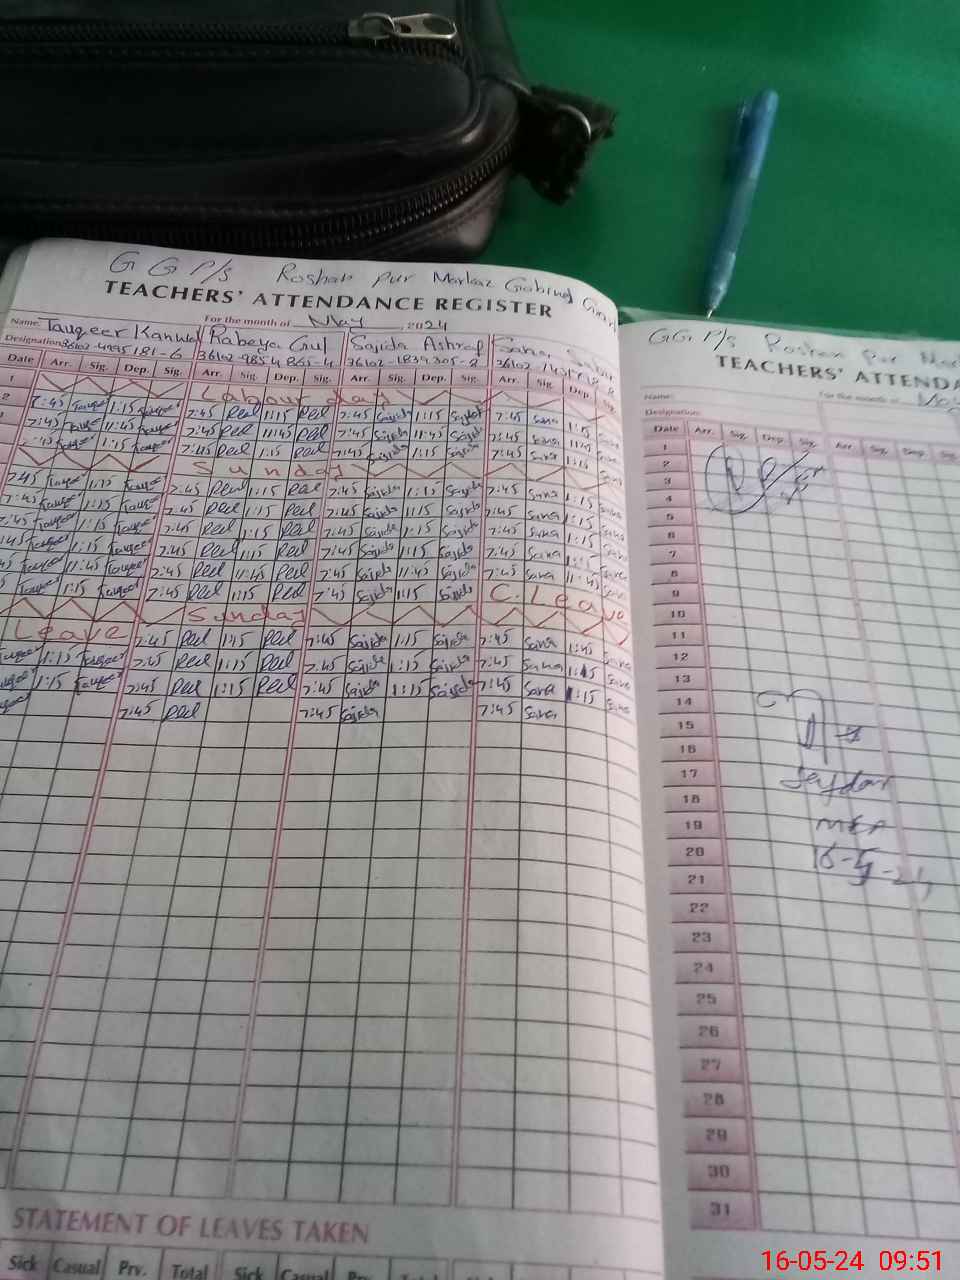 G G P/s Roshan Pur Markaz Gobind
TEACHERS' ATTENDANCE REGISTER
Name. For the month of May, 2024
Tauqeer Kanwal Rabeya Gul Sajida Ashraf Sana
Designation
Date Arr. Sig. Dep. Sig. Arr. Sig. Dep. Sig. Arr. Sig. Dep. Sig. Arr. Sig. Dep. Sig.
1 Labour day
2 7:45 Tauqeer 1:15 Tauqeer 7:45 Rul 1:15 Rul 7:45 Sajida 1:15 Sajida 7:45 Sana 1:15 Sana
7:45 Tauqeer 11:45 Tauqeer 7:45 Rul 11:45 Rul 7:45 Sajida 11:45 Sajida 7:45 Sana 11:45 Sana
7:45 Tauqeer 1:15 Tauqeer 7:45 Rul 1:15 Rul 7:45 Sajida 1:15 Sajida 7:45 Sana 1:15 Sana
Sunday
7:45 Tauqeer 1:15 Tauqeer 7:45 Rul 1:15 Rul 7:45 Sajida 1:15 Sajida 7:45 Sana 1:15 Sana
7:45 Tauqeer 1:15 Tauqeer 7:45 Rul 1:15 Rul 7:45 Sajida 1:15 Sajida 7:45 Sana 1:15 Sana
7:45 Tauqeer 1:15 Tauqeer 7:45 Rul 1:15 Rul 7:45 Sajida 1:15 Sajida 7:45 Sana 1:15 Sana
:45 Tauqeer 1:15 Tauqeer 7:45 Rul 1:15 Rul 7:45 Sajida 1:15 Sajida 7:45 Sana 1:15 Sana
Tauqeer 11:45 Tauqeer 7:45 Rul 11:45 Rul 7:45 Sajida 11:45 Sajida 7:45 Sana 11:45 Sana
Tauqeer 1:15 Tauqeer 7:45 Rul 1:15 Rul 7:45 Sajida 1:15 Sajida C. Leave
Sunday
Leave 7:45 Rul 1:15 Rul 7:45 Sajida 1:15 Sajida 7:45 Sana 1:45 Sana
Tauqeer 1:15 Tauqeer 7:45 Rul 1:15 Rul 7:45 Sajida 1:15 Sajida 7:45 Sana 1:15 Sana
1:15 Tauqeer 7:45 Rul 1:15 Rul 7:45 Sajida 1:15 Sajida 7:45 Sana 1:15 Sana
7:45 Rul 7:45 Sajida 7:45 Sana
STATEMENT OF LEAVES TAKEN
Sick Casual Prv. Total Sick Casual
GG P/s Roshan Pur
TEACHERS' ATTENDA
Name: For the month of May
Designation:
Date Arr. Sig. Dep. Sig. Arr. Sig. Dep. Sig.
1
2
3
4
5
6
7
8
9
10
11
12
13
14
15
16
17
18
19
20
21
22
23
24
25
26
27
28
29
30
31
MEA
16-5-24
16-05-24 09:51